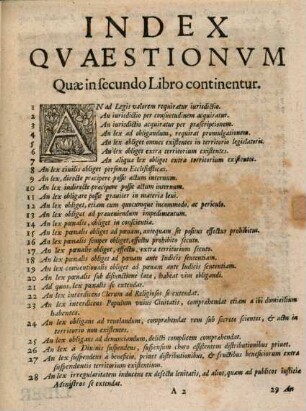 INDEX
QVAESTIONVM
Quæ in secundo Libro continentur.
1 AN ad Legis valorem requiratur iurisdictio.
2 An iurisdictio per consuetudinem acquiratur.
3 An iurisdictio acquiratur per præscriptionem.
4 An lex ad obligandum, requirat promulgationem.
5 An lex obliget omnes existentes in territorio legislatoris.
6 An lex obliget extra territorium existentes.
7 An aliqua lex obliget extra territorium existentes.
8 An lex ciuilis obliget personas Ecclesiasticas.
9 An lex, directe præcipere possit actum internum.
10 An lex indirecte præcipere possit actum internum.
11 An lex obligare possit grauiter in materia leui.
12 An lex obliget, etiam cum quocumque incommodo, ac periculo.
13 An lex obliget ad præueniendum impedimentum.
14 An lex pœnalis, obliget in conscientia.
15 An lex pœnalis obliget ad pœnam, antequam sit positus effectus prohibitus.
16 An lex pœnalis semper obliget, effectu prohibito secuto.
17 An lex pœnalis obliget, effectu, extra territorium secuto.
18 An lex pœnalis obliget ad pœnam ante Iudicis sententiam.
19 An lex conuentionalis obliget ad pœnam ante Iudicis sententiam.
20 An lex pœnalis sub disiunctione lata, habeat vim obligandi.
21 Ad quos, lex pœnalis se extendat.
22 An lex interdictus Clerum ad Religiosos se extendat.
23 An lex interdictus Populum vnius Ciuitatis, comprehendat etiam a ibi domicilium
habentes.
24 An lex obligans ad reuelandum, comprehendat rem sub secreto scientes, & actu in
territorio non existentes.
25 An lex obligans ad denunciandum, delicti complicem comprehendat.
26 An lex à Diuinis suspendens, suspensum choro assistentem distributionibus priuet.
27 An lex suspendens a beneficio, priuet distributionibus, & fructibus beneficiorum extra
suspendentis territorium existentium.
28 An lex irregularitatem inducens ex defectu lenitatis, ad alios, quam ad publicos iustitiæ
Administros se extendat.
A 2 29 An